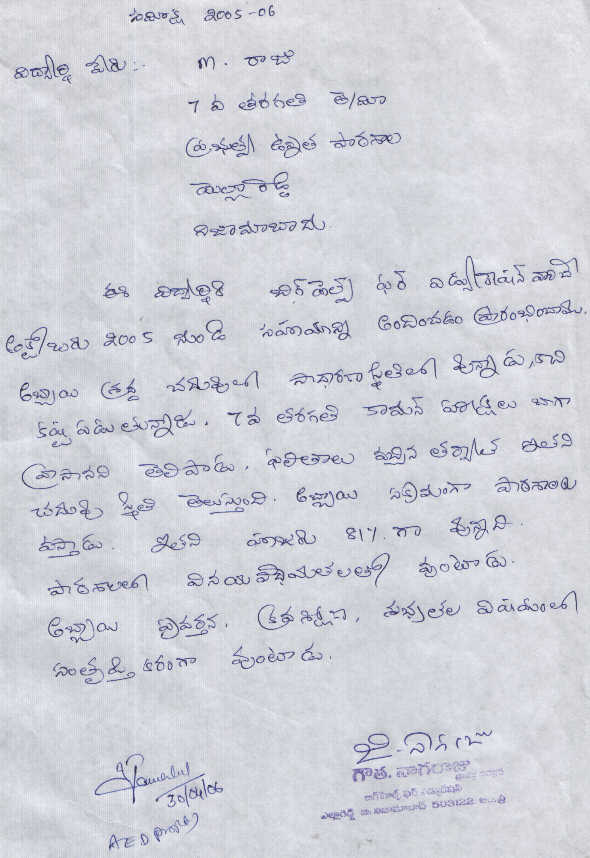 సమీక్ష 2005-06
విద్యార్థి పేరు:- M. రాజు
7 వ తరగతి తె/మీ
ప్రభుత్వ ఉన్నత పాఠశాల
ఎల్లారెడ్డి
నిజామాబాదు.
ఈ విద్యార్థికి హెల్ప్ ఫర్ ఎడ్యుకేషన్
అక్టోబరు 2005 నుండి సహాయాన్ని అందించడం ప్రారంభించాము.
అబ్బాయి శ్రద్ధ చదువులో సాధారణ స్థితిలో వున్నాడు, కాని
కష్టపడుతున్నాడు. 7వ తరగతి కామన్ పరీక్షలు బాగా
వ్రాసానని తెలిపాడు. ఫలితాలు వచ్చిన తర్వాత ఇతని
చదువు స్థితి తెలుస్తుంది. అబ్బాయి పాఠశాలకు
వస్తాడు. ఇతని హాజరు 81%. గా వున్నది.
పాఠశాలలో వినయ విధేయతలతో వుంటాడు.
అబ్బాయి ప్రవర్తన, క్రమశిక్షణ, సభ్యతల విషయంలో
సంతృప్తికరంగా వుంటాడు.
జి. నాగరాజు
గోత్ర. నాగరాజు
30/04/06
ఎల్లారెడ్డి జి. నిజామాబాద్ 503122
AED